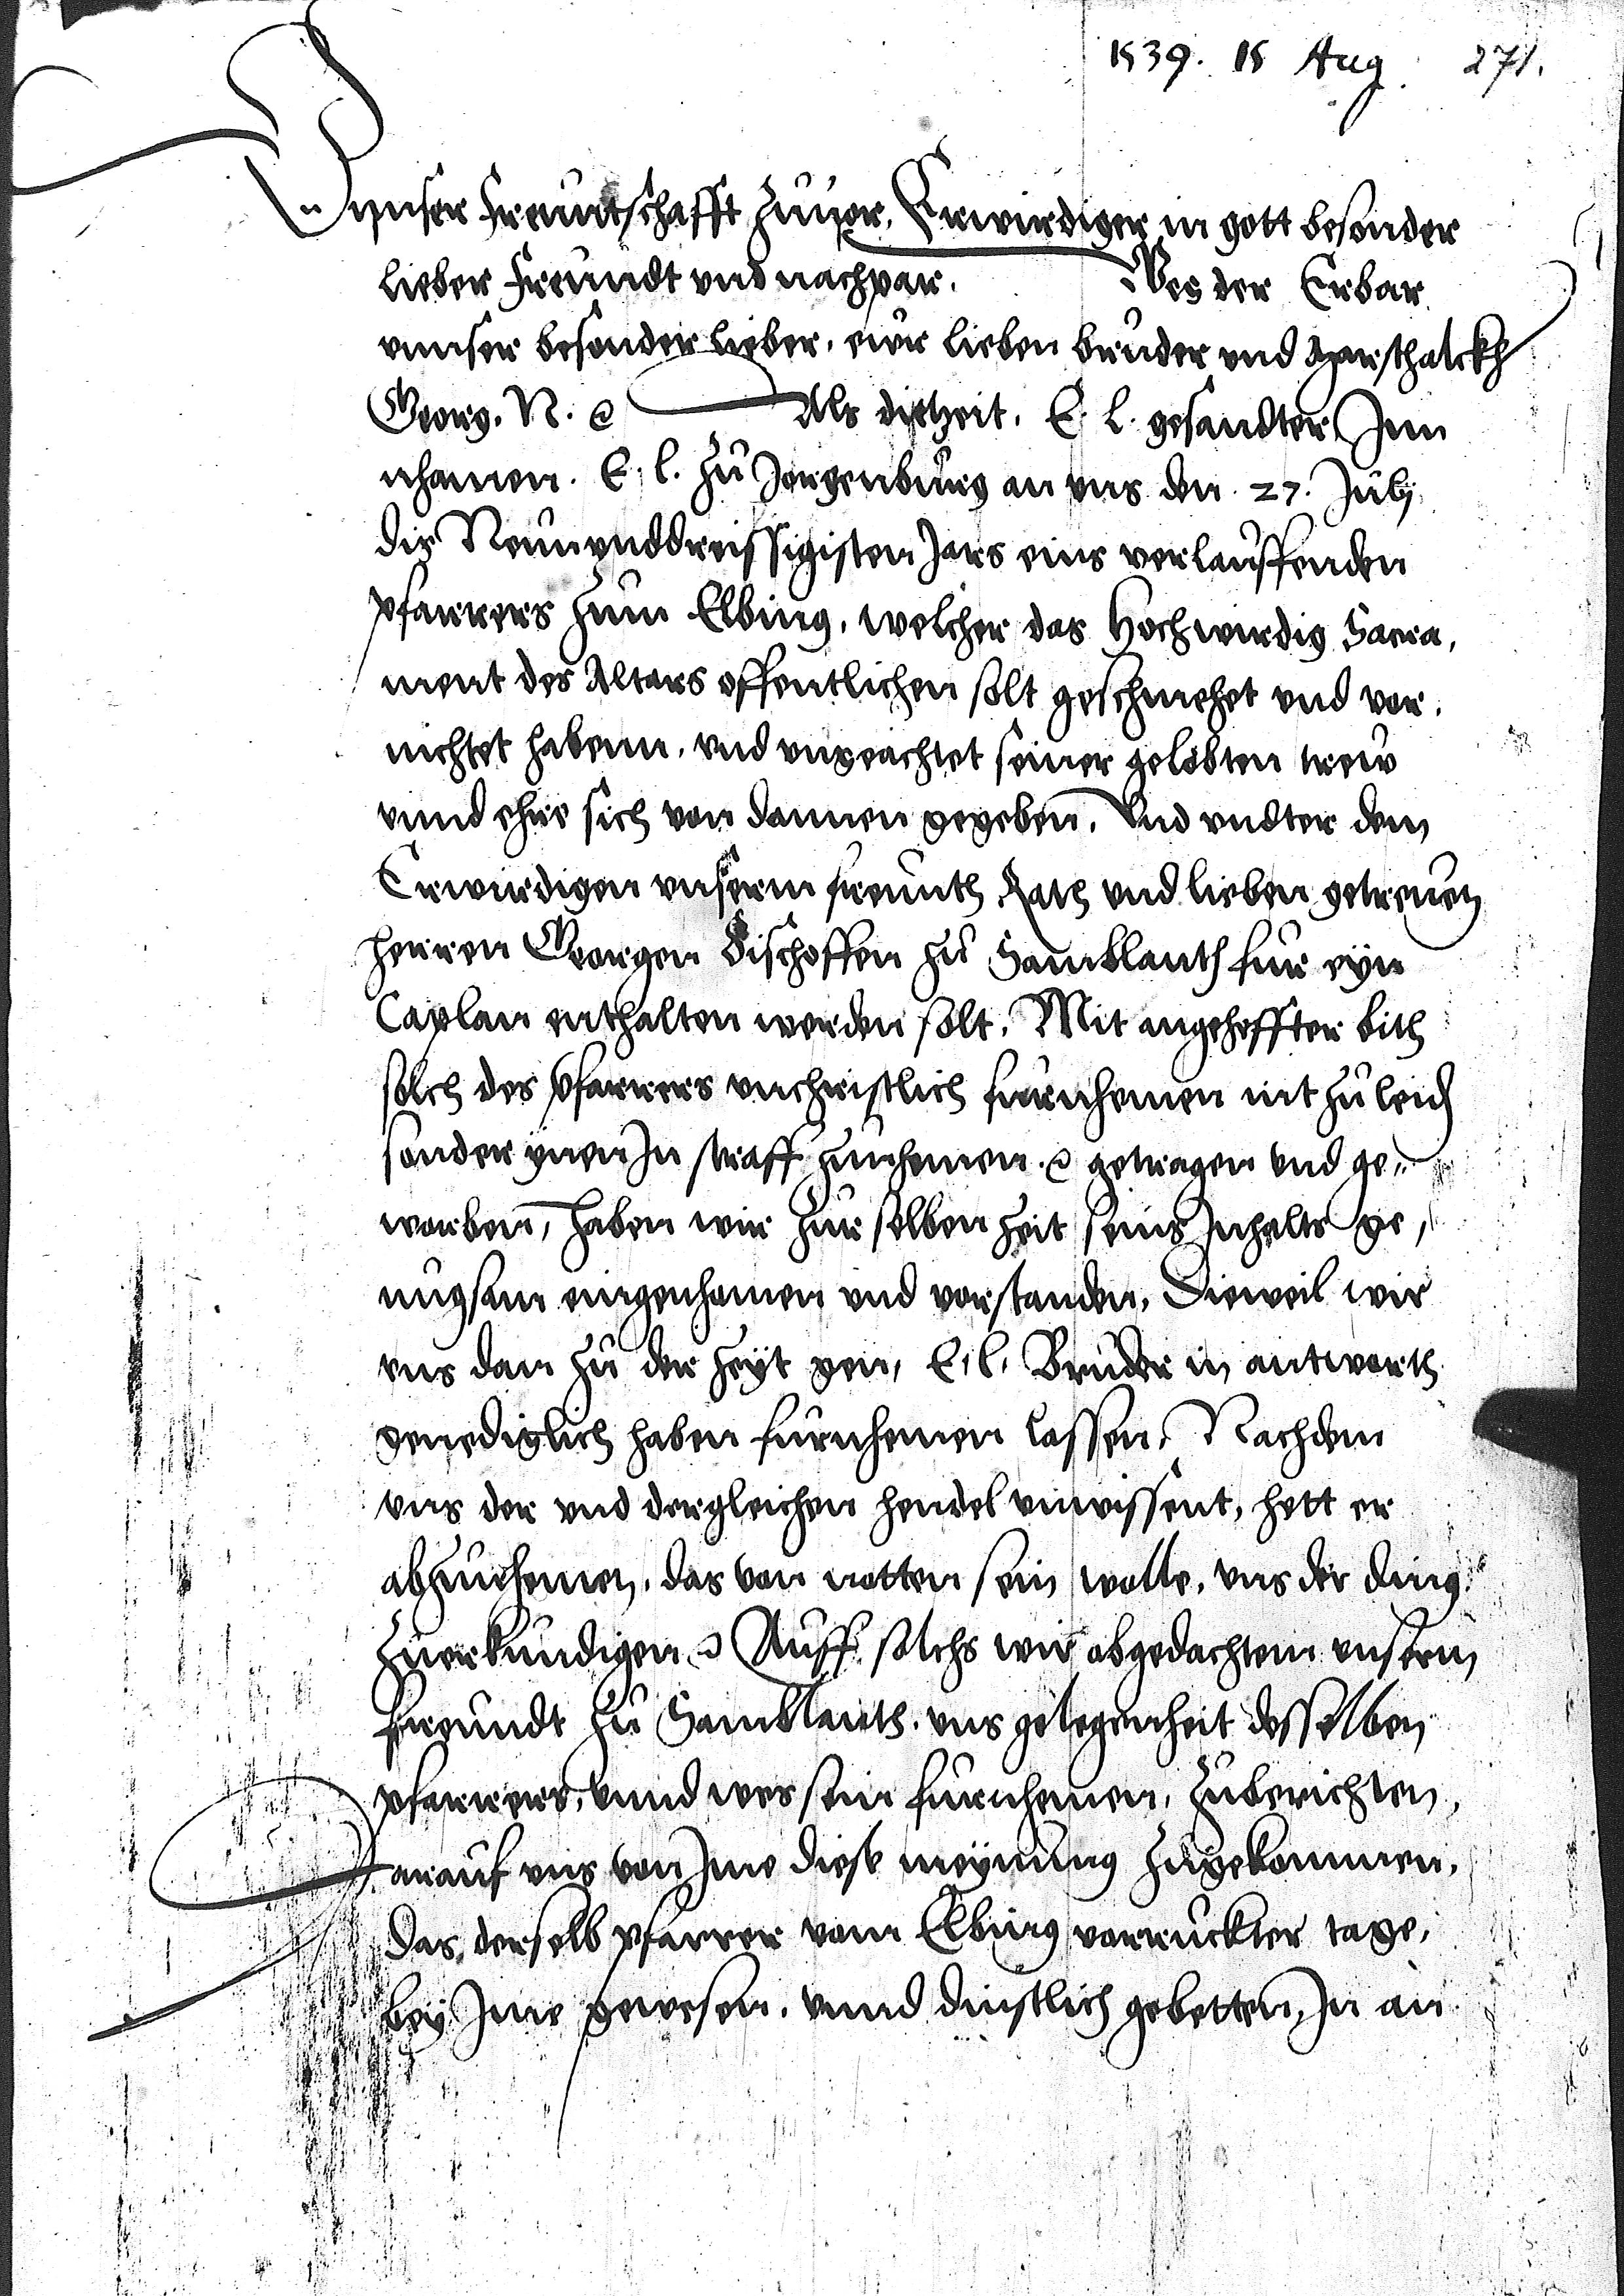 1539. 15 Aug. 271.
Vnser freuntschafft zuuor, Erwirdiger in gott besonder
lieber freundt vnd nachpar. Wes der Erbar
vnnser besonder lieber, eur lieben bruder vnd Marschalckh
Georg. N. Als dietzeit. E. l. gesandter Inn
nhamen. E. l. zu Jorgenburg an vns den. 27. July
dis Neunvnddreissigisten Jars eins verlauffenden
pfarrers zum Elbing, welcher das hochwirdig Sacra,
ment des Altars offentlichen solt geschmehet vnd vor,
nichtet habenn, vnd vngeachtet seiner gelobten trew
vnnd ehre sich von dannen gegeben, Vnd vndter dem
Erwirdigen vnserm freunth Rath vnd lieben getreuen
herren Georgen Bischoffen zu Samblanth fur eyn
Caplan enthalten werden solt, Mit angeheffter bith
solch des pfarrers vnchristlich furnhemen nit zu leid
sonder ynen In straff zunhemen. getragen vnd ge„
worben, haben wir zur selben zeit seins Inhalts ge,
nugsam eingenhomen vnd vorstanden, Dieweil wir
vns dan zu der zeyt gen, E. l. Bruder in antworth
genediglich haben furnhemen lassen, Nachdem
vns der vnd dergleichen hendel vnwissent, hett er
abzunhemen, das von notten sein wolle, vns der ding
zuerkundigen Auff solchs wir obgedachtem vnserm
freundt zu Samblanth, vns gelegenheit desselben
pfarrers, vnnd wes sein furnhemen, zuberichten,
Darauf vns von Ime diese meynung zugekommen,
Das, derselb pfarrer vom Elbing vorruckter tage,
bey Ime gewesen, vnnd dinstlich gebetten, In an